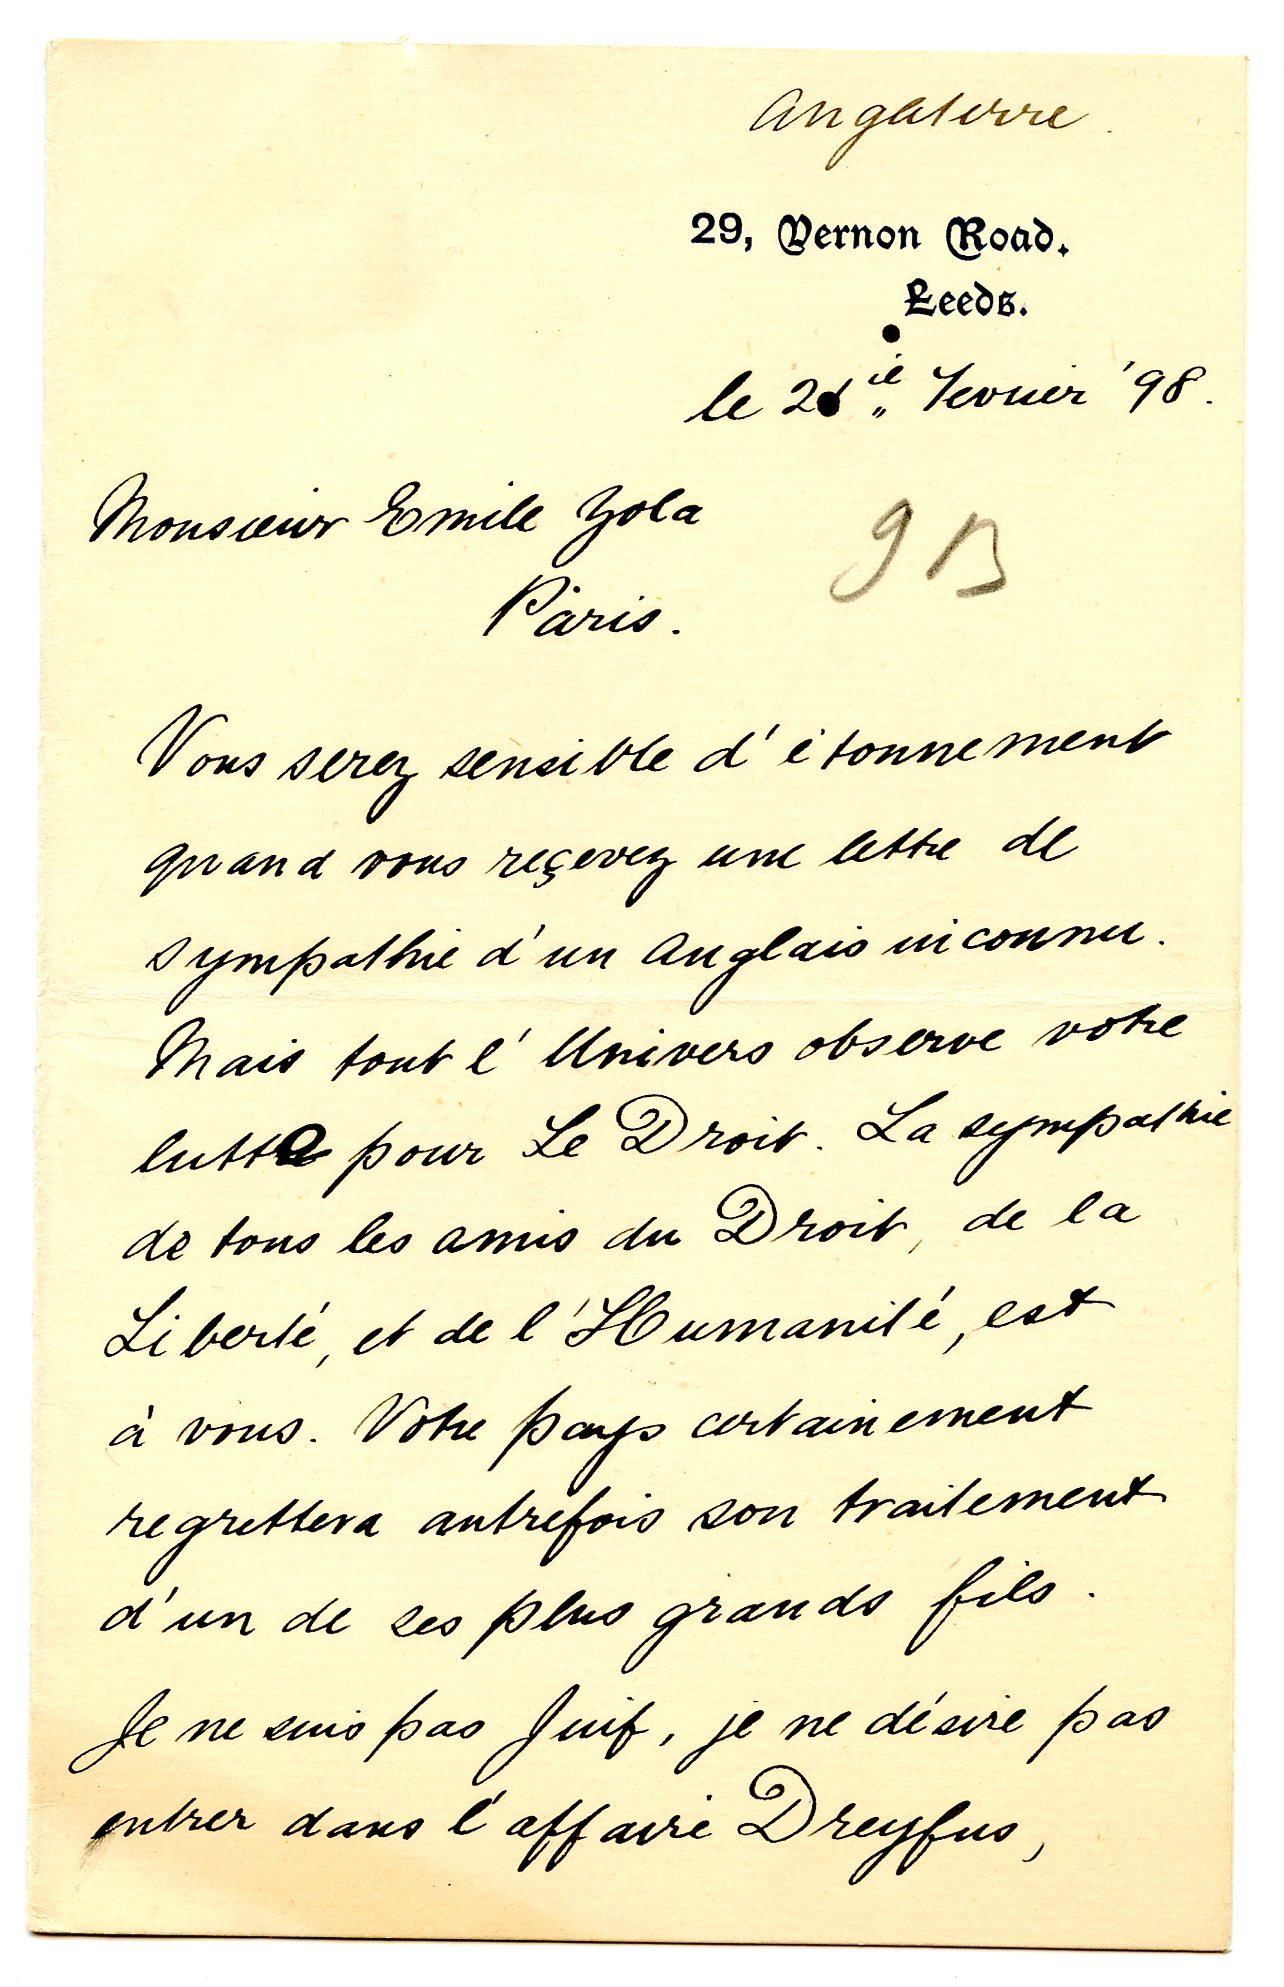 Angleterre
29, Vernon Road.
Leeds.
le ie Fevrier '98.
Monsieur Emile Zola
Paris.
9 B
Vous serez sensible d'étonnement
quand vous reçevez une lettre de
sympathie d'un Anglais inconnu.
Mais tout l'Univers observe votre
lutte pour Le Droit. La sympathie
de tous les amis du Droit, de la
Liberté, et de l'Humanité, est
à vous. Votre pays certainement
regrettera autrefois son traitement
d'un de ses plus grands fils.
Je ne suis pas Juif, je ne désire pas
entrer dans l'affaire Dreyfus,